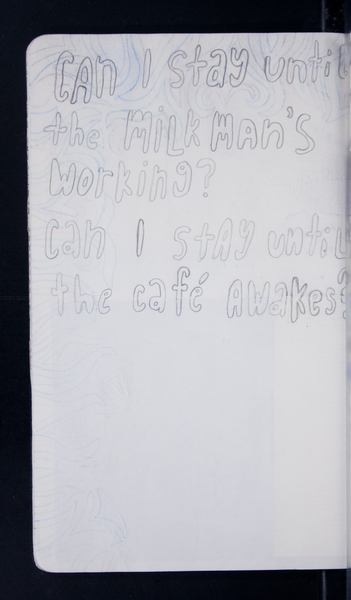 CAN I stay until
the MiLKMAN'S
working?
Can I stAy untiL
the café AWakes?